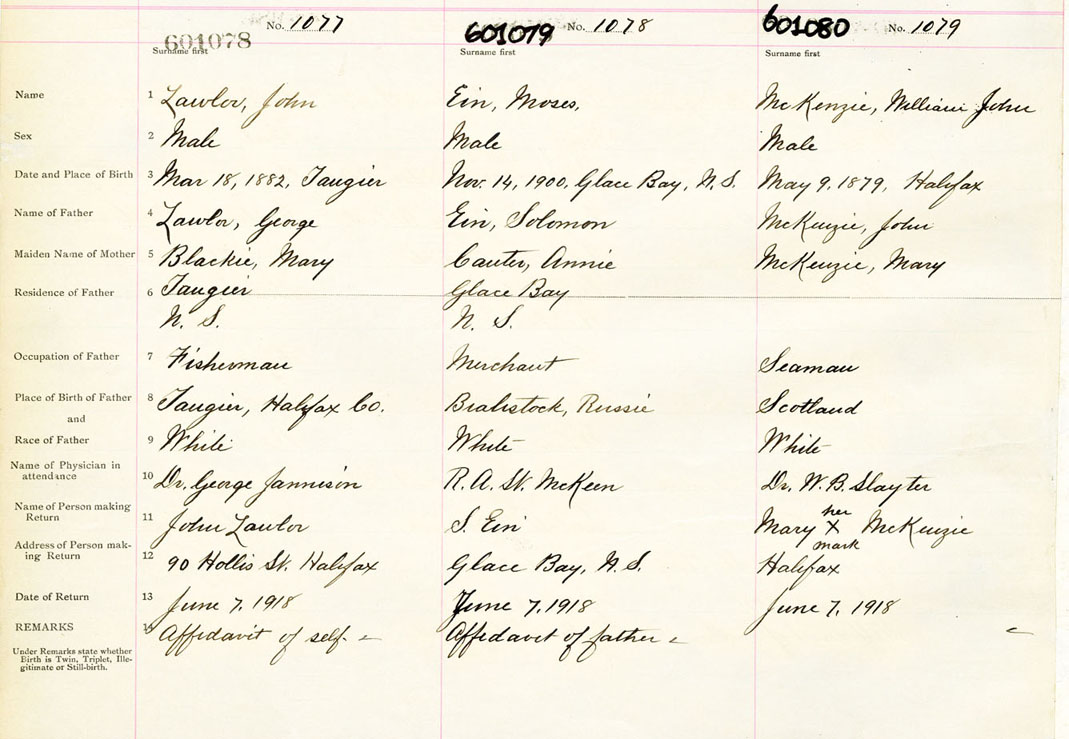 No. 1077
601078
Surname first
601079
No. 1078
Surname first
601080
No. 1079
Surname first
Name 1 Lawlor, John Ein, Moses, McKenzie, William John
Sex 2 Male Male Male
Date and Place of Birth 3 Mar 18, 1882, Tangier Nov. 14, 1900, Glace Bay, N.S. May 9, 1879, Halifax
Name of Father 4 Lawlor, George Ein, Solomon McKenzie, John
Maiden Name of Mother 5 Blackie, Mary Canter, Annie McKenzie, Mary
Residence of Father 6 Tangier Glace Bay
N. S. N. S.
Occupation of Father 7 Fisherman Merchant Seaman
Place of Birth of Father 8 Tangier, Halifax Co. Bialistock, Russie Scotland
and
Race of Father 9 White White White
Name of Physician in
attendance 10 Dr. George Jannison R.A. St. McKeen Dr. W.B. Slayter
Name of Person making
Return 11 John Lawlor S. Ein Mary her X mark McKenzie
Address of Person mak-
ing Return 12 90 Hollis St. Halifax Glace Bay, N.S. Halifax
Date of Return 13 June 7, 1918 June 7, 1918 June 7, 1918
REMARKS 14 Affidavit of self - Affidavit of father -
Under Remarks state whether
Birth is Twin, Triplet, Ille-
gitimate or Still-birth.